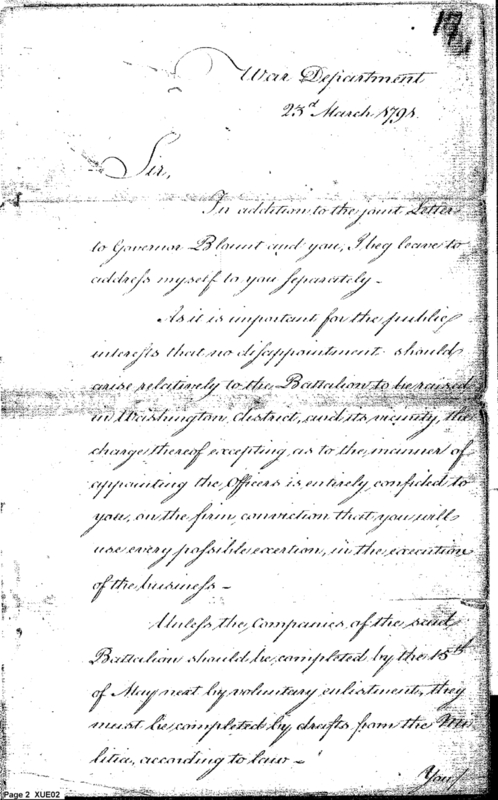 17
War Department
23d March 1791.
Sir,
In addition to the joint Letter
to Governor Blount and you, I beg leave to
address myself to you separately —
As it is important for the public
interests that no disappointment should
arise relatively to the Battalion to be raised
in Washington district, and its vicinity, the
charge thereof excepting as to the manner of
appointing the Officers is entirely confided to
you, on the firm conviction that you will
use every possible exertion, in the execution
of the business —
Unless the Companies of the said
Battalion should be completed by the 15th
of May next by voluntary enlistment, they
must be completed by drafts from the Mi-
litia, according to law —
You/
Page 2 XUE02